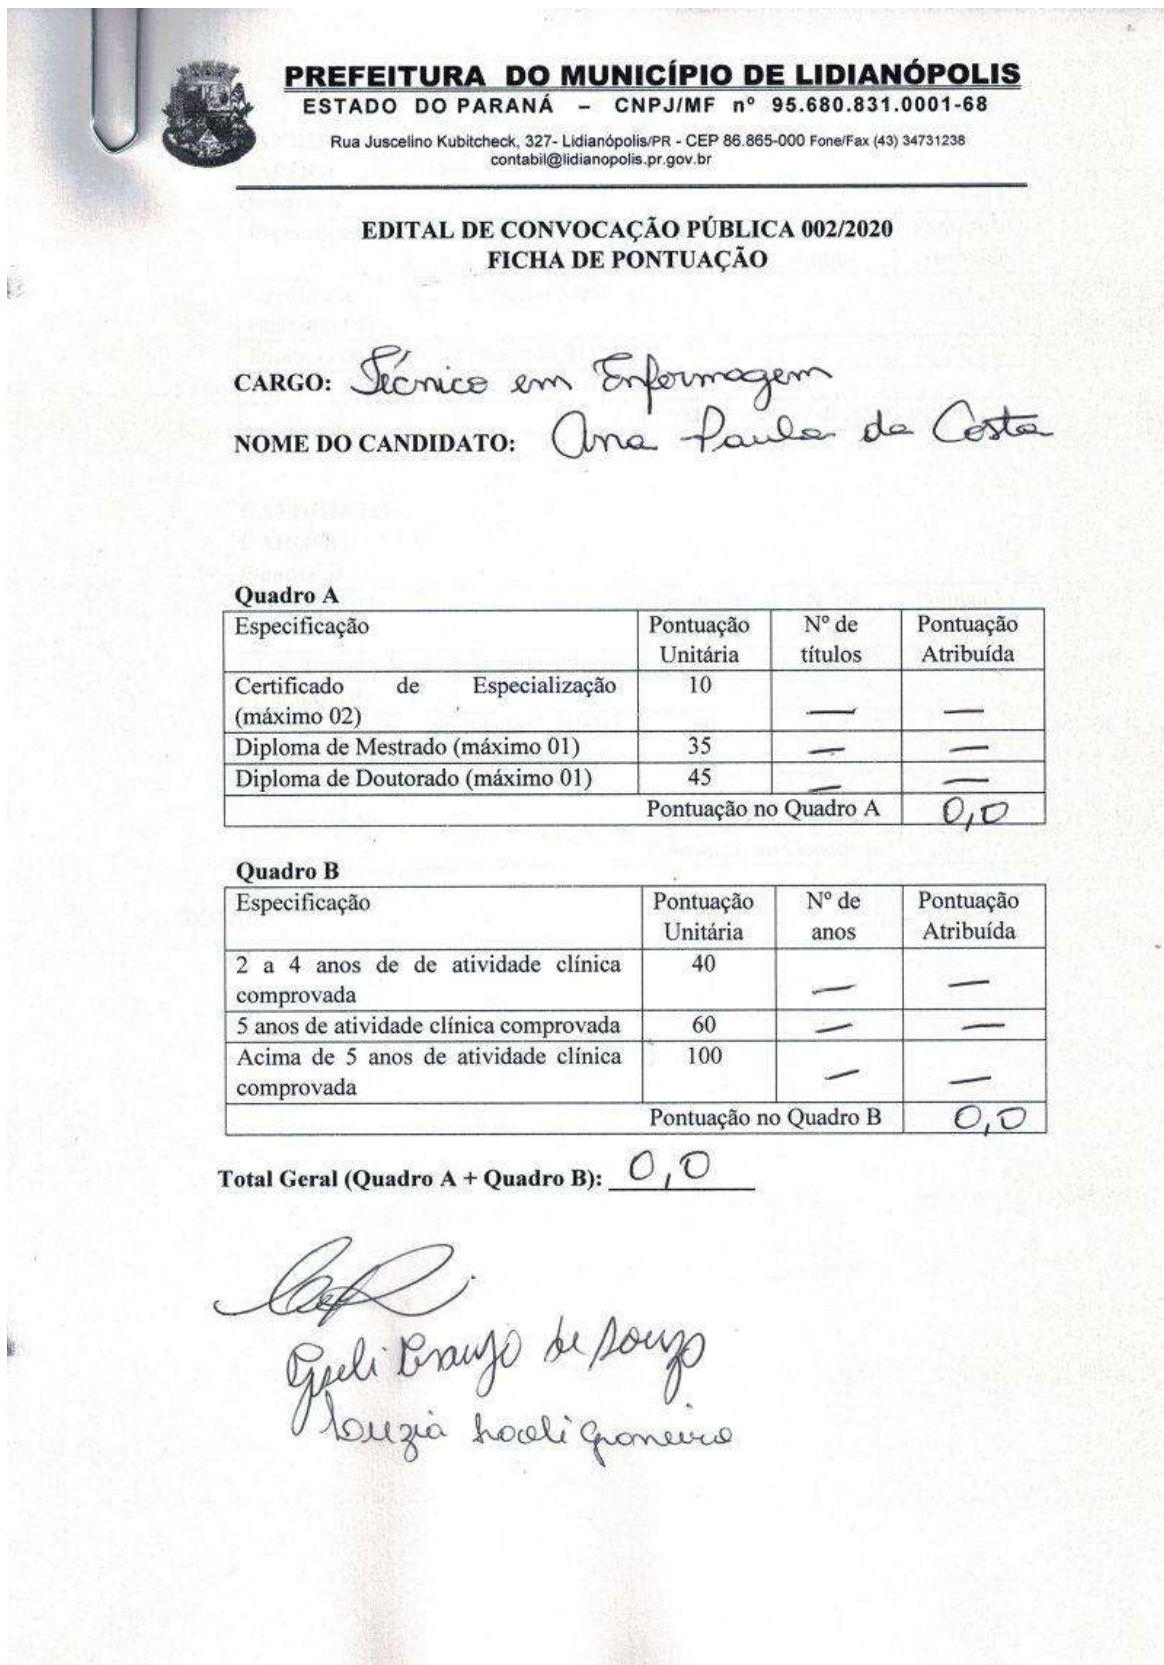 PREFEITURA DO MUNICÍPIO DE LIDIANÓPOLIS
ESTADO DO PARANÁ – CNPJ/MF nº 95.680.831.0001-68
Rua Juscelino Kubitcheck, 327- Lidianópolis/PR - CEP 86.865-000 Fone/Fax (43) 34731238
contabil@lidianopolis.pr.gov.br
EDITAL DE CONVOCAÇÃO PÚBLICA 002/2020
FICHA DE PONTUAÇÃO
CARGO: Técnico em Enfermagem
NOME DO CANDIDATO: Ana Paula da Costa
Quadro A
Especificação Pontuação Unitária Nº de títulos Pontuação Atribuída
Certificado de Especialização (máximo 02) 10 — —
Diploma de Mestrado (máximo 01) 35 — —
Diploma de Doutorado (máximo 01) 45 — —
Pontuação no Quadro A 0,0
Quadro B
Especificação Pontuação Unitária Nº de anos Pontuação Atribuída
2 a 4 anos de de atividade clínica comprovada 40 — —
5 anos de atividade clínica comprovada 60 — —
Acima de 5 anos de atividade clínica comprovada 100 — —
Pontuação no Quadro B 0,0
Total Geral (Quadro A + Quadro B): 0,0
Araujo de Souza
Luzia